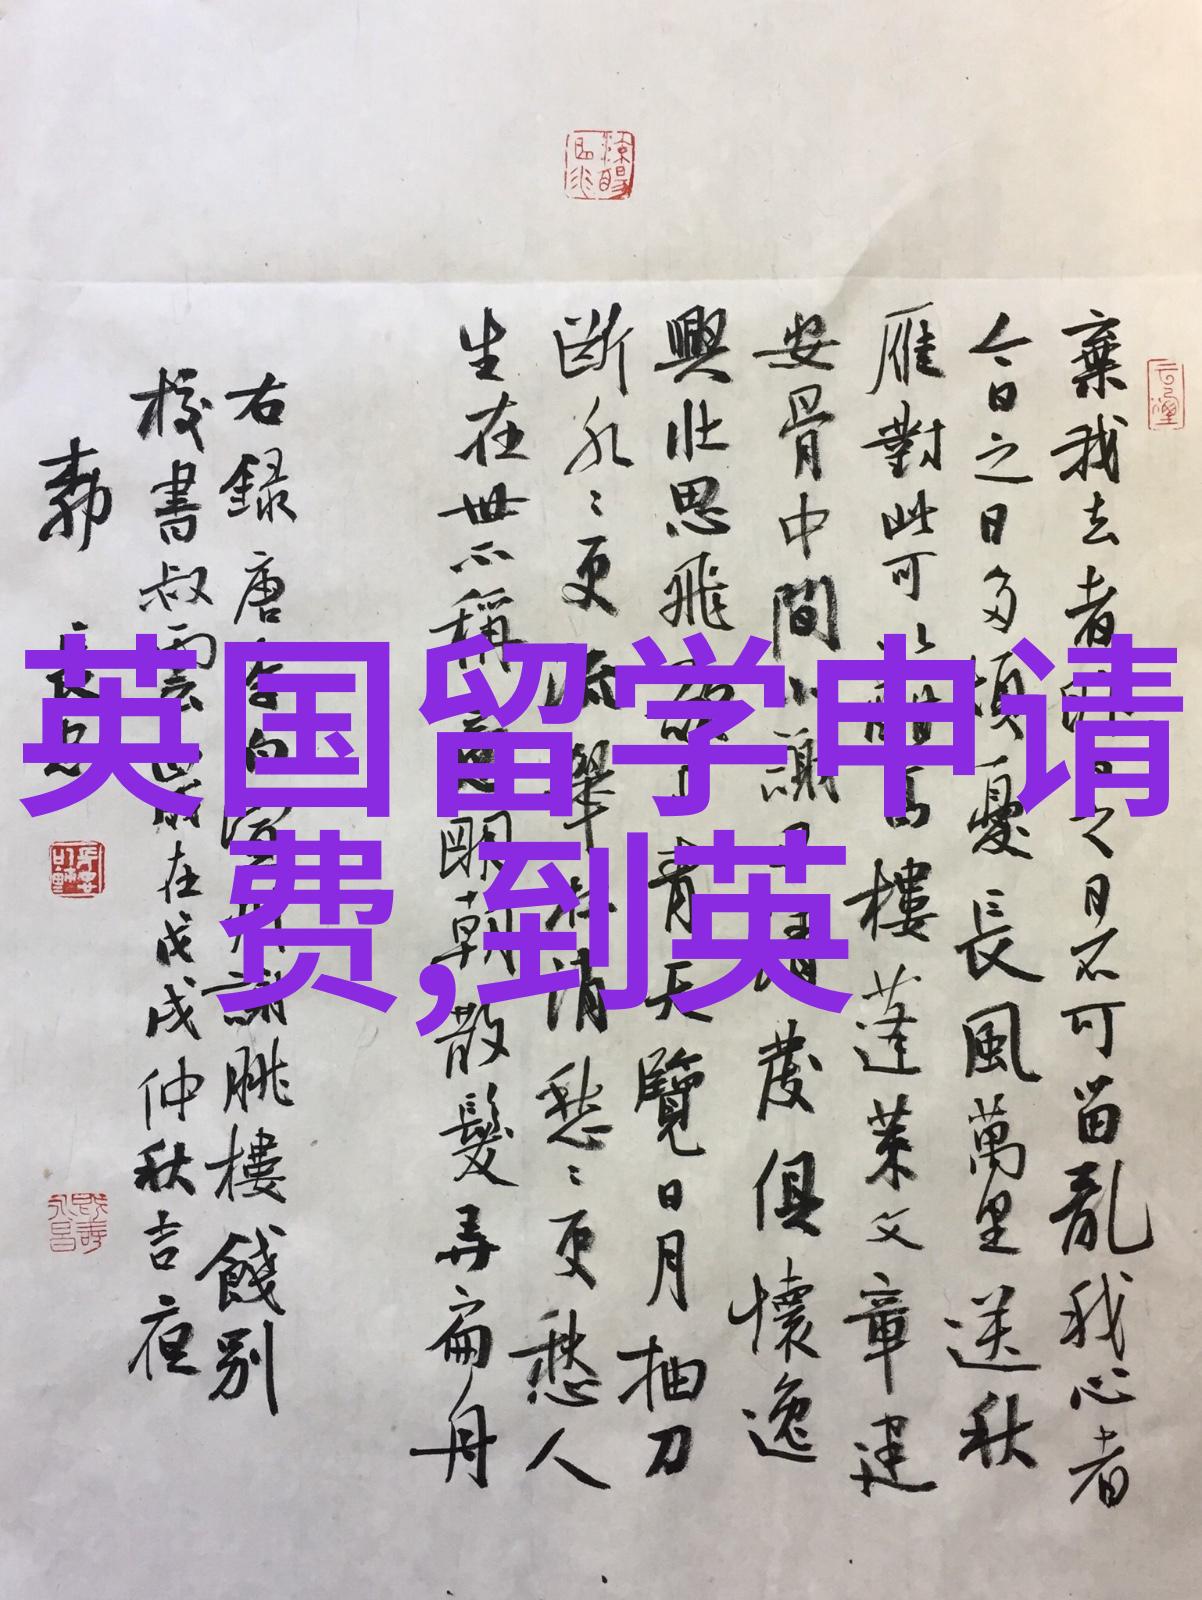 英国留学申请
费,到英
棄我去者昨日之日不可留亂我心者
今日之日多煩憂長風萬里送秋
雁對此可以酣高樓蓬萊文章建
安骨中間小謝又清發俱懷逸
興壯思飛欲上青天覽日月抽刀
斷水〻更流舉杯消愁〻更愁人
生在世不稱意明朝散髮弄扁舟
右録唐李白宣州謝朓樓餞別
校書叔雲歲在戊戌仲秋吉夜